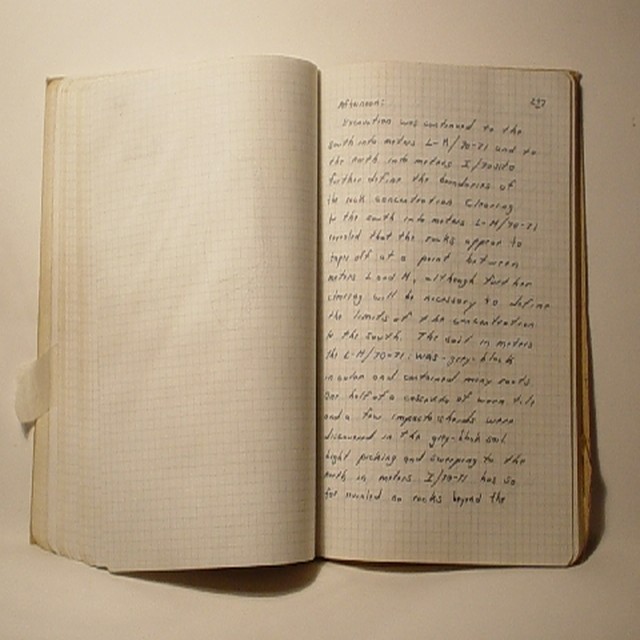 237
Afternoon:
Excavation was continued to the
south into meters L-M/70-71 and to
the north into meters I/70 to
further define the boundaries of
the rock concentration. Clearing
to the south into meters L-M/70-71
revealed that the rocks appear to
taper off at a point between
meters L and M, although further
clearing will be necessary to define
the limits of the concentration
to the south. The soil in meters
the L-M/70-71 was grey-black
in color and contained many roots.
One half of a of worn tile
and a few impasto sherds were
discovered in the grey-black soil.
Light picking and sweeping to the
north in meters I/70-71 has so
far revealed no rocks beyond the